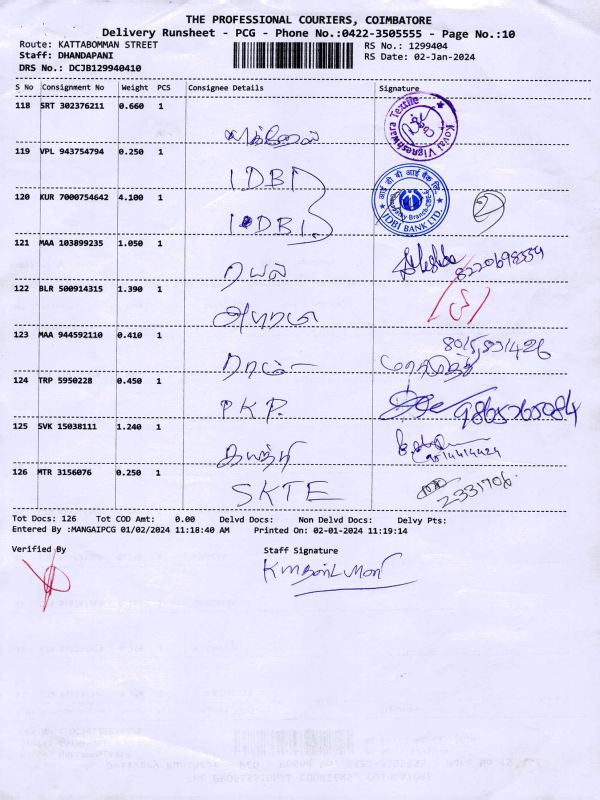 THE PROFESSIONAL COURIERS, COIMBATORE
Delivery Runsheet - PCG - Phone No.:0422-3505555 - Page No.:10
Route: KATTABOMMAN STREET RS No.: 1299404
Staff: DHANDAPANI RS Date: 02-Jan-2024
DRS No.: DCJB129940410
S No Consignment No Weight PCS Consignee Details Signature
118 SRT 302376211 0.660 1
Kovai Vigneshwara Textile
119 VPL 943754794 0.250 1
IDBI
120 KUR 7000754642 4.100 1
IDBI
IDBI BANK LTD.
2
121 MAA 103899235 1.050 1
ரயில்
8220698334
122 BLR 500914315 1.390 1
அபிராமி
123 MAA 944592110 0.410 1
124 TRP 5950228 0.450 1
P.K.P.
9865265084
125 SVK 15038111 1.240 1
காயத்ரி
126 MTR 3156076 0.250 1
SKTE
2331706
Tot Docs: 126 Tot COD Amt: 0.00 Delvd Docs: Non Delvd Docs: Delvy Pts:
Entered By :MANGAIPCG 01/02/2024 11:18:40 AM Printed On: 02-01-2024 11:19:14
Verified By Staff Signature